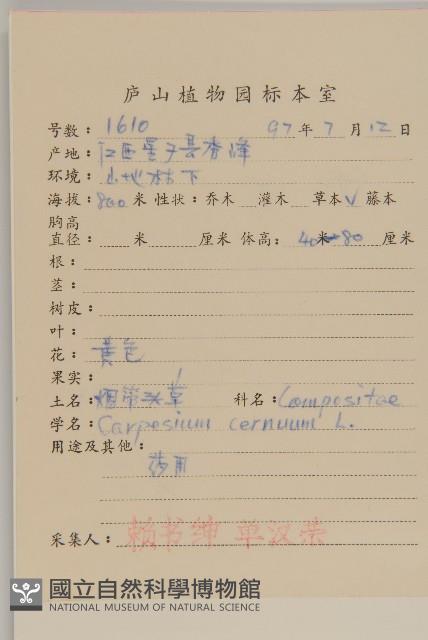 庐山植物园标本室
号数：1610 97年7月12日
产地：江西星子县秀峰
环境：山地林下
海拔：800米 性状：乔木 灌木 草本√ 藤本
胸高
直径： 米 厘米 体高：40米—80厘米
根：
茎：
树皮：
叶：
花：黄色
果实：
土名：烟管头草 科名：Compositae
学名：Carpesium cernuum L.
用途及其他：
药用
采集人：赖书绅 单汉荣
國立自然科學博物館
NATIONAL MUSEUM OF NATURAL SCIENCE